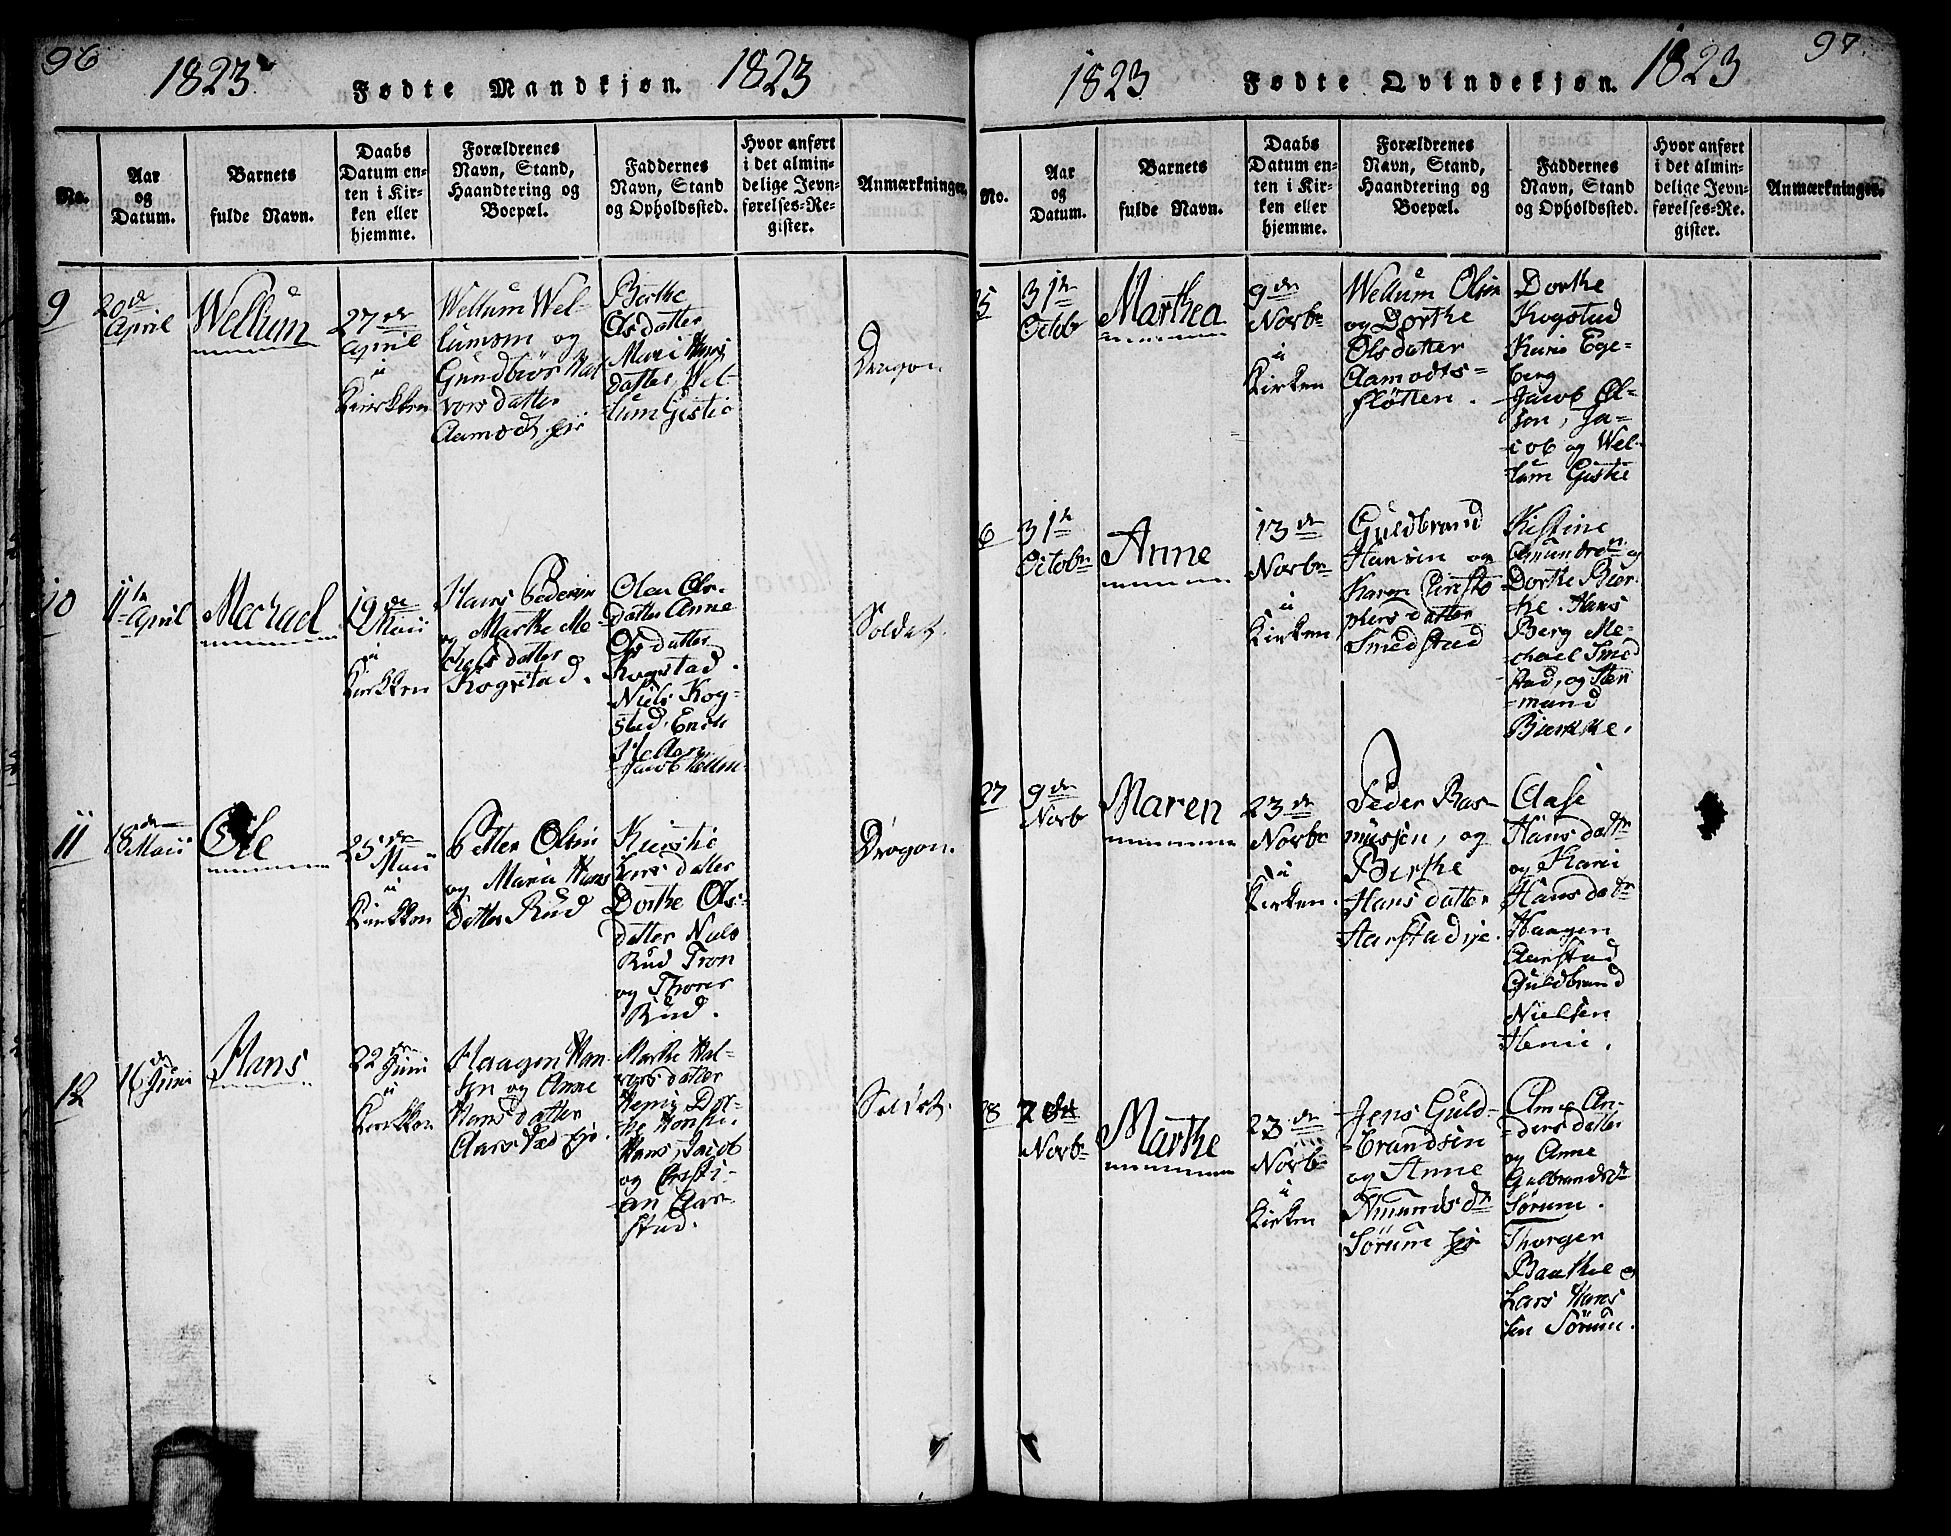 96
1823
Fødte Mandkjøn.
1823
No.
Aar og Datum.
Barnets fulde Navn.
Daabs Datum enten i Kirken eller hjemme.
Forældrenes Navn, Stand, Haandtering og Boepæl.
Faddernes Navn, Stand og Opholdssted.
Hvor anført i det almindelige Jevnførelses-Register.
Anmærkninger.
9
20de
April
Wellum
27de
April
i
Kirkken
Wellum Wel-
lumsøn og
Gundbiør Hal
vorsdatter
Aamodt eje
Berthe
Olsdatter
Mari Hans
datter, Wel-
lum Gistie
Dragon.
10
11te
April
Mechael
19de
Maii
i
Kirkken
Hans Pedersen
og Marthe Me-
chelsdatter
Kogstad.
Olea Ols-
datter Anne
Olsdatter
Kogstad.
Niels Kog-
stad.
Soldat.
11
18de
Maii
Ole
25de
Maii
i
Kirkken
Petter Olsen
og Maria Hans
datter Rud
datter
Dorthe Ols-
datter Niels
Rud Tron
og Thorer
Rud.
Dragon.
12
16de
Juni
Hans
22de
Juni
i
Kirkken
Haagen Han-
sen og Anne
Hansdatter
Aarstad eje.
Marthe Hal-
vorsdatter
Henie, Dor-
the
Hans, Jacob
og Christi-
an Aar-
stad.
Soldat.
97
1823
Fødte Qvindekjøn.
1823
No.
Aar og Datum.
Barnets fulde Navn.
Daabs Datum enten i Kirken eller hjemme.
Forældrenes Navn, Stand, Haandtering og Boepæl.
Faddernes Navn, Stand og Opholdssted.
Hvor anført i det almindelige Jevnførelses-Re. gister.
Anmærkninger.
5
31te
Octobr
Marthea
9de
Novbr
i
Kirken
Wellum Olsen
og Dorthe
Olsdatter
Aamodts-
fløtten.
Dorthe
Kogstad
Kari Ege-
berg
Jacob Ol-
sen, Ja-
cob og Wel-
lum Gistie
6
31te
Octobr
Anne
13de
Novbr
i
Kirken
Guldbrand
Hansen og
Karen Christo
phersdatter
Smedstad
Kistine
Amundsen og
Dorthe Bier-
ke. Hans
Berg Me-
chael Smed
stad, og
mund
Bierkke.
27
9de
Novb
Maren
23de
Novbr
i
Kirken.
Peder Ras-
mussen, og
Berthe
Hansdatter
Aarstad eje.
Aase
Hansdatr
og Kari
Hansdatr
Haagen
Aarstad
Guldbrand
Nielsen
Henie.
28
Novbr
Marthe
23de
Novbr
i
Kirken
Jens Guld-
brandsen
og Anne
Amundsdr
Sørum eje
Anne An-
dersdatter
og Anne
Gulbrandsdr
Sørum.
Thorger
Baakke og
Lars Hans
sen Sørum.